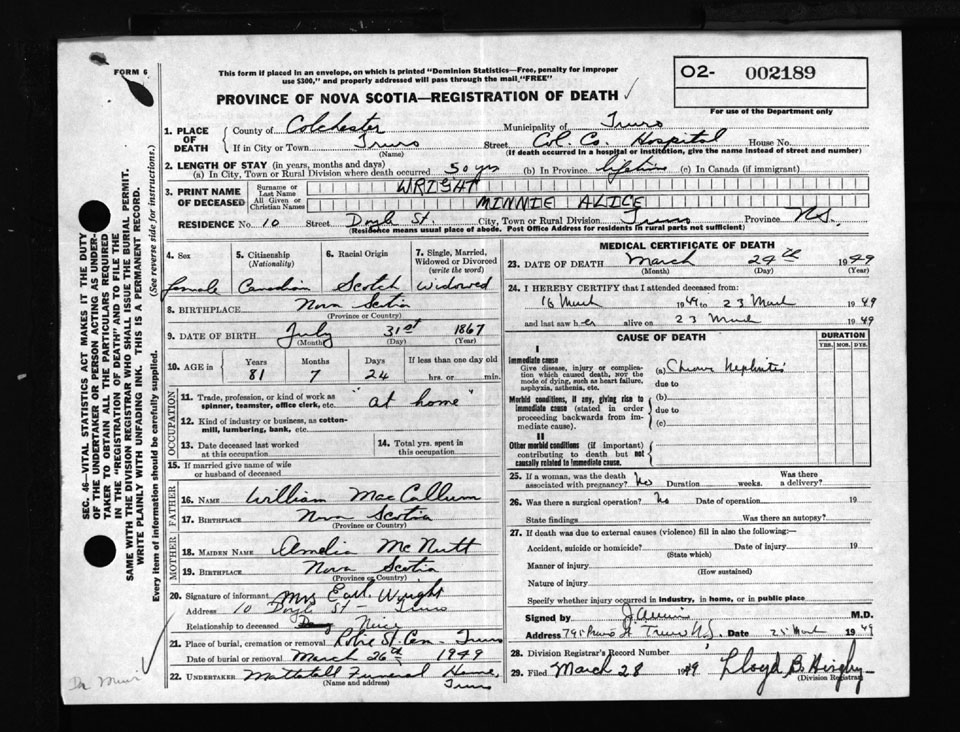 FORM 6
This form if placed in an envelope, on which is printed "Dominion Statistics—Free, penalty for improper
use $300," and properly addressed will pass through the mail, "FREE"
O2- 002189
PROVINCE OF NOVA SCOTIA—REGISTRATION OF DEATH ✓
For use of the Department only
1. PLACE OF DEATH { County of Colchester Municipality of Truro
If in City or Town Truro (Name) Street Col. Co. Hospital House No.
(If death occurred in a hospital or institution, give the name instead of street and number)
2. LENGTH OF STAY (in years, months and days)
(a) In City, Town or Rural Division where death occurred 50 yrs (b) In Province lifetime (c) In Canada (if immigrant)
3. PRINT NAME OF DECEASED { Surname or Last Name WRIGHT
All Given or Christian Names MINNIE ALICE
RESIDENCE No. 10 Street Doyle St. City, Town or Rural Division Truro Province N.S.
(Residence means usual place of abode. Post Office Address for residents in rural parts not sufficient)
4. Sex female
5. Citizenship (Nationality) Canadian
6. Racial Origin Scotch
7. Single, Married, Widowed or Divorced (write the word) Widowed
8. BIRTHPLACE Nova Scotia
(Province or Country)
9. DATE OF BIRTH July 31st 1867
(Month) (Day) (Year)
10. AGE in { Years 81 Months 7 Days 24 If less than one day old hrs. or min.
OCCUPATION
11. Trade, profession, or kind of work as spinner, teamster, office clerk, etc. "at home"
12. Kind of industry or business, as cotton-mill, lumbering, bank, etc.
13. Date deceased last worked at this occupation
14. Total yrs. spent in this occupation
15. If married give name of wife or husband of deceased
FATHER
16. NAME William MacCallum
17. BIRTHPLACE Nova Scotia
(Province or Country)
MOTHER
18. MAIDEN NAME Amelia McNutt
19. BIRTHPLACE Nova Scotia
(Province or Country)
20. Signature of informant Mrs Earl Wright
Address 10 Doyle St - Truro
Relationship to deceased Neice
21. Place of burial, cremation or removal Robie St. Cem - Truro
Date of burial or removal March 26th 1949
22. UNDERTAKER Mattatall Funeral Home,
(Name and address) Truro
MEDICAL CERTIFICATE OF DEATH
23. DATE OF DEATH March 24th 1949
(Month) (Day) (Year)
24. I HEREBY CERTIFY that I attended deceased from:
16 March 1949 to 23 March 1949
and last saw her alive on 23 March 1949
CAUSE OF DEATH
DURATION
YRS. MOS. DYS.
I
Immediate cause
Give disease, injury or complication which caused death, not the mode of dying, such as heart failure, asphyxia, asthenia, etc.
(a) Chronic Nephritis
due to
Morbid conditions, if any, giving rise to immediate cause (stated in order proceeding backwards from immediate cause).
(b)
due to
(c)
II
Other morbid conditions (if important) contributing to death but not causally related to immediate cause.
25. If a woman, was the death associated with pregnancy? No Duration weeks. Was there a delivery?
26. Was there a surgical operation? No Date of operation 19
State findings Was there an autopsy?
27. If death was due to external causes (violence) fill in also the following:—
Accident, suicide or homicide? Date of injury 19
(State which)
Manner of injury
(How sustained)
Nature of injury
Specify whether injury occurred in industry, in home, or in public place
Signed by M.D.
Address Truro N.S. Date 25 March 1949
28. Division Registrar's Record Number
29. Filed March 28 1949 Lloyd B.
(Division Registrar)
SEC. 46—VITAL STATISTICS ACT MAKES IT THE DUTY
OF THE UNDERTAKER OR PERSON ACTING AS UNDER-
TAKER TO OBTAIN ALL THE PARTICULARS REQUIRED
IN THE "REGISTRATION OF DEATH" AND TO FILE THE
SAME WITH THE DIVISION REGISTRAR WHO SHALL ISSUE THE BURIAL PERMIT.
WRITE PLAINLY WITH UNFADING INK. THIS IS A PERMANENT RECORD.
Every item of information should be carefully supplied. (See reverse side for instructions.)
Dr Muir